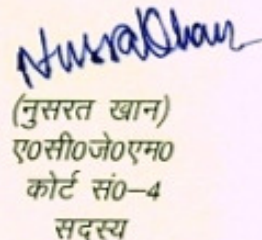 Nusrat Khan
(नुसरत खान)
ए0सी0जे0एम0
कोर्ट सं0–4
सदस्य